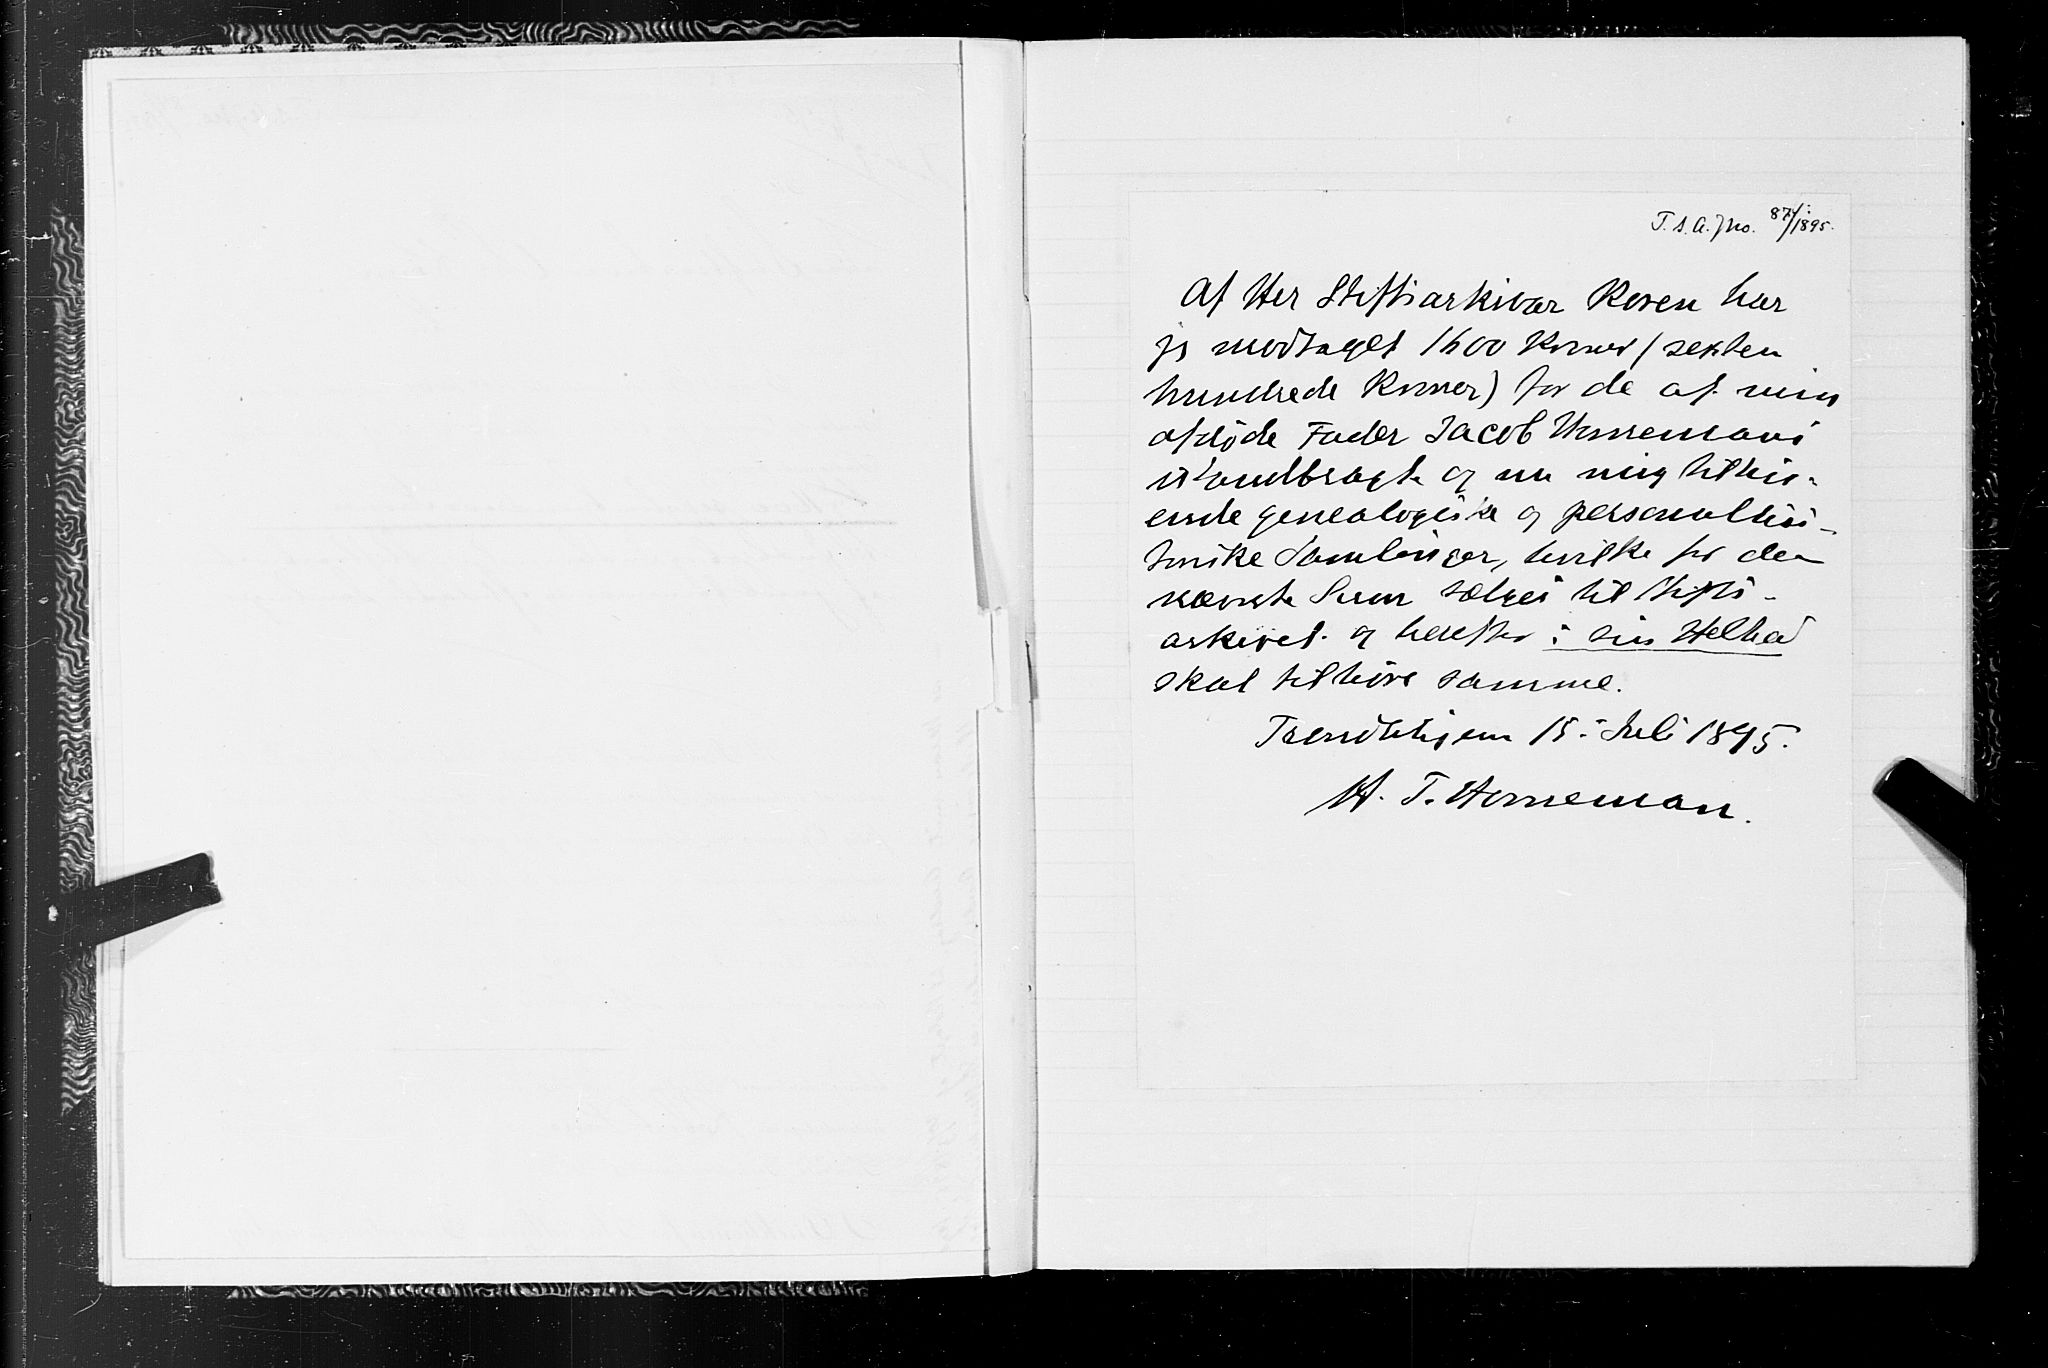 T. s. A. J No. 87/1895.
Af Her Stiftsarkivar Koren har
jeg modtaget 1600 Kroner (sexten
hundrede Kroner) for de af min
afdøde Fader Jacob Hornemans
istandbragte og nu mig tilhør-
ende genealogiske og personalhis-
toriske Samlinger, hvilke for den
nævnte Sum sælges til Stifts-
arkivet og herefter i sin Helhed
skal tilhøre samme.
Trondhjem 15. Juli 1895.
H. T. Horneman.